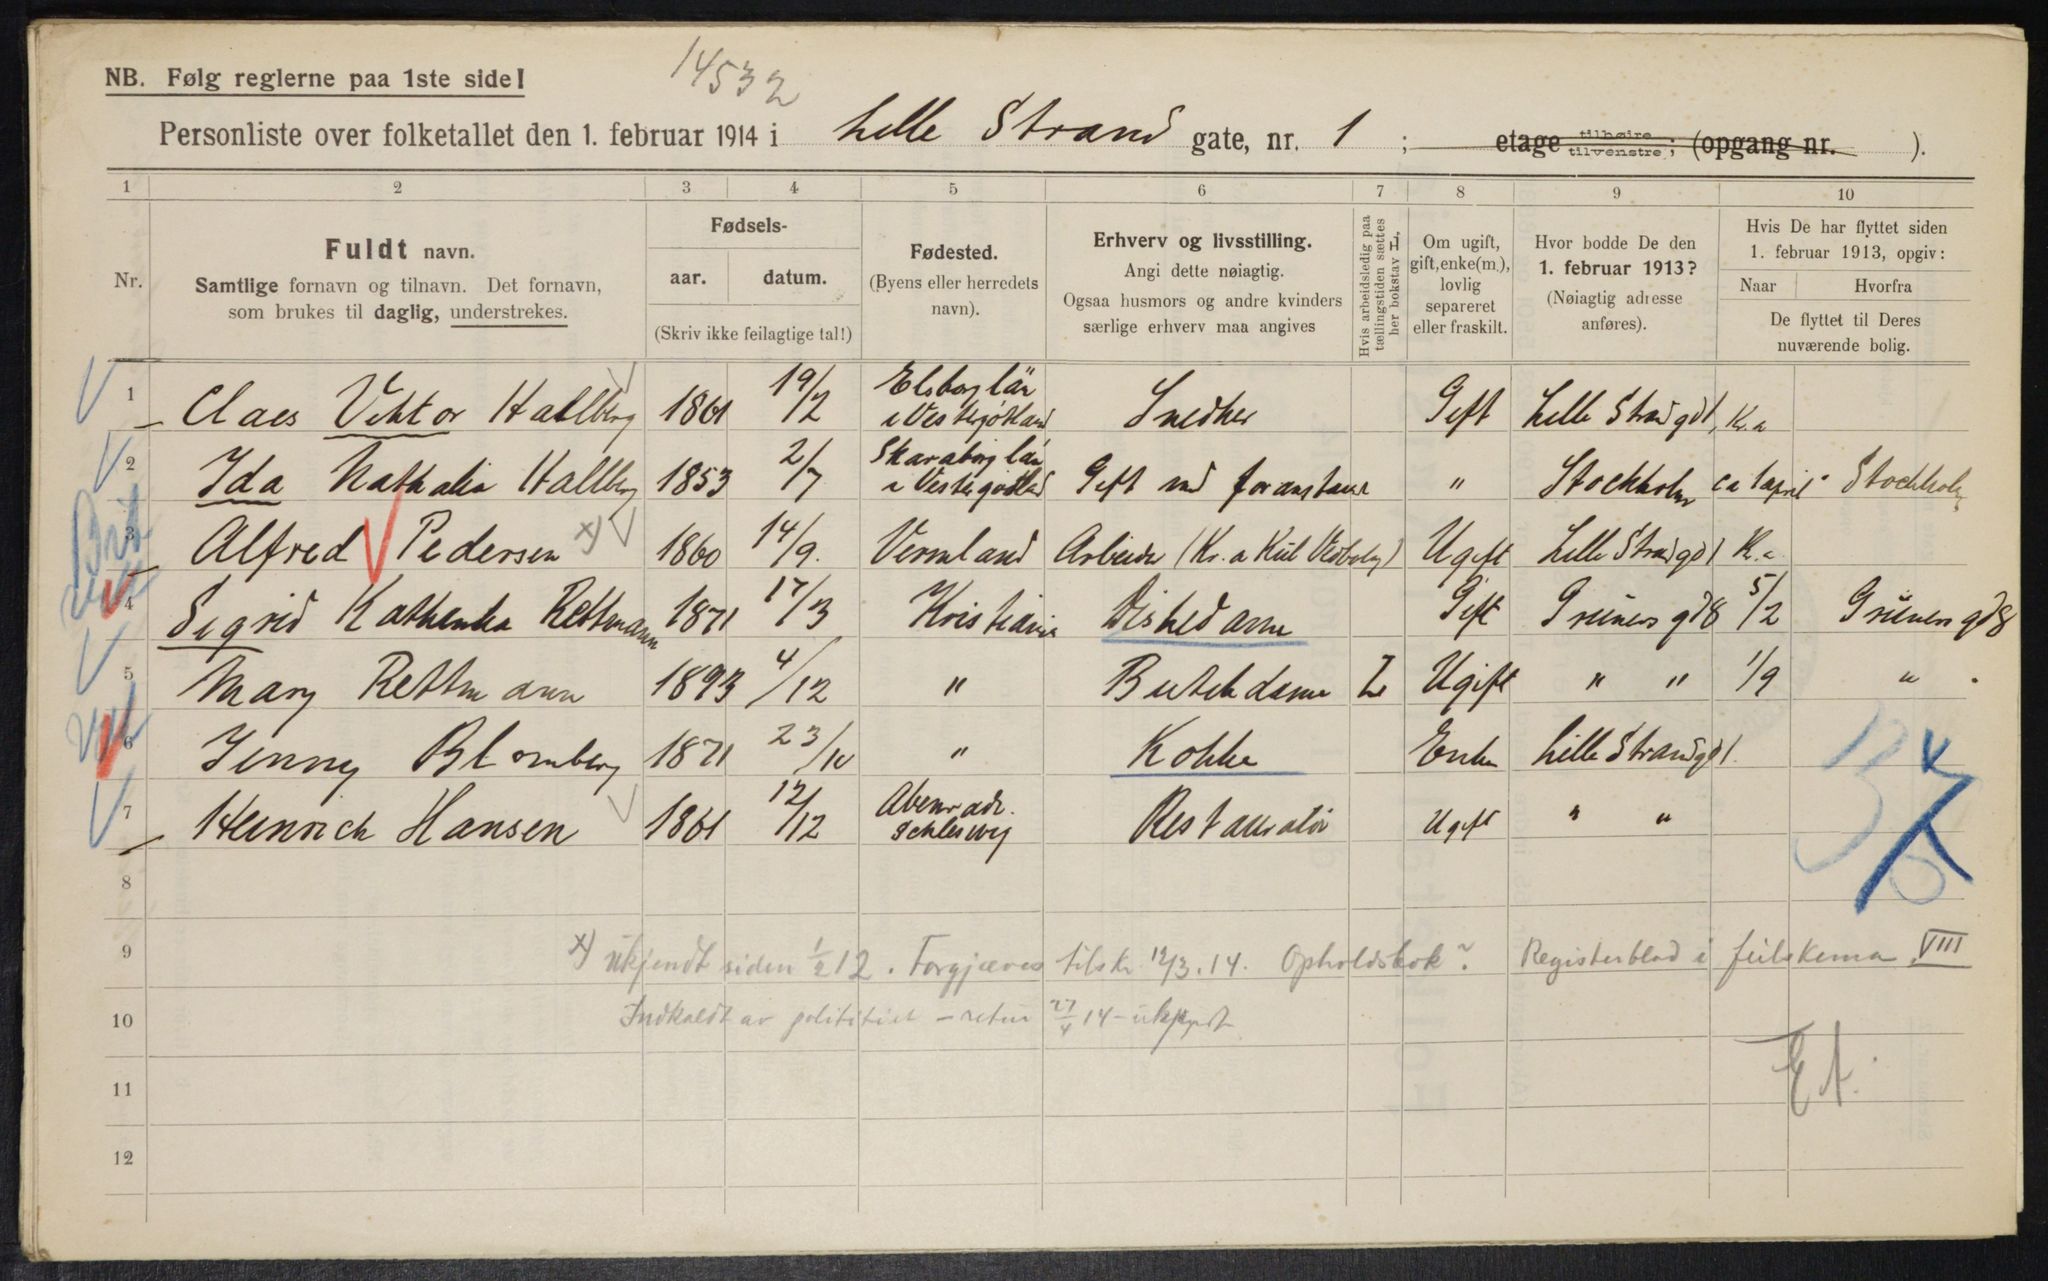 14532
NB. Følg reglerne paa 1ste side!
Personliste over folketallet den 1. februar 1914 i Lille Strand gate, nr. 1 ; etage tilhøire tilvenstre; (opgang nr. ).
1 2 3 4 5 6 7 8 9 10
Nr.
Fuldt navn.
Samtlige fornavn og tilnavn. Det fornavn,
som brukes til daglig, understrekes.
Fødsels-
aar. datum.
(Skriv ikke feilagtige tal!)
Fødested.
(Byens eller herredets
navn).
Erhverv og livsstilling.
Angi dette nøiagtig.
Ogsaa husmors og andre kvinders
særlige erhverv maa angives
Hvis arbeidsledig paa
tællingstiden sættes
her bokstav L.
Om ugift,
gift, enke(m.),
lovlig
separeret
eller fraskilt.
Hvor bodde De den
1. februar 1913?
(Nøiagtig adresse
anføres).
Hvis De har flyttet siden
1. februar 1913, opgiv:
Naar Hvorfra
De flyttet til Deres
nuværende bolig.
1 Claes Viktor Hallberg 1861 19/2 Elsborg län i Vestergötland Snedker Gift Lille Strandgd 1, Kr.a
2 Ida Nathalia Hallberg 1853 2/7 Skaraborg län i Vestergötland Gift med foranstaaende " Stockholm ca 1 april Stockholm
3 Alfred Pedersen x) 1860 14/9. Vermland Arbeider (Kr.a Kul Vedbolag) Ugift Lille Strandgd 1 Kr.a
4 Sigrid Kathinka Rettmann 1871 17/3 Kristiania Diskedame Gift Grüners gd 8 5/2 Grüners gd 8
5 Mary Rettmann 1893 4/12 " Butikdame L Ugift " " 1/9 "
6 Jenny Blomberg 1871 23/10 " Kokke Enke Lille Strandgd 1.
7 Heinrich Hansen 1861 12/12 Abenrade. Schleswig Restauratør Ugift " "
8
9 x) ukjendt siden 1/2 12. Forgjæves tilskr. 12/3.14. Opholdsbok? Registerblad i feilskema VIII
10 Indkaldt av politiet – retur 27/4 14 – ukjendt
11
12